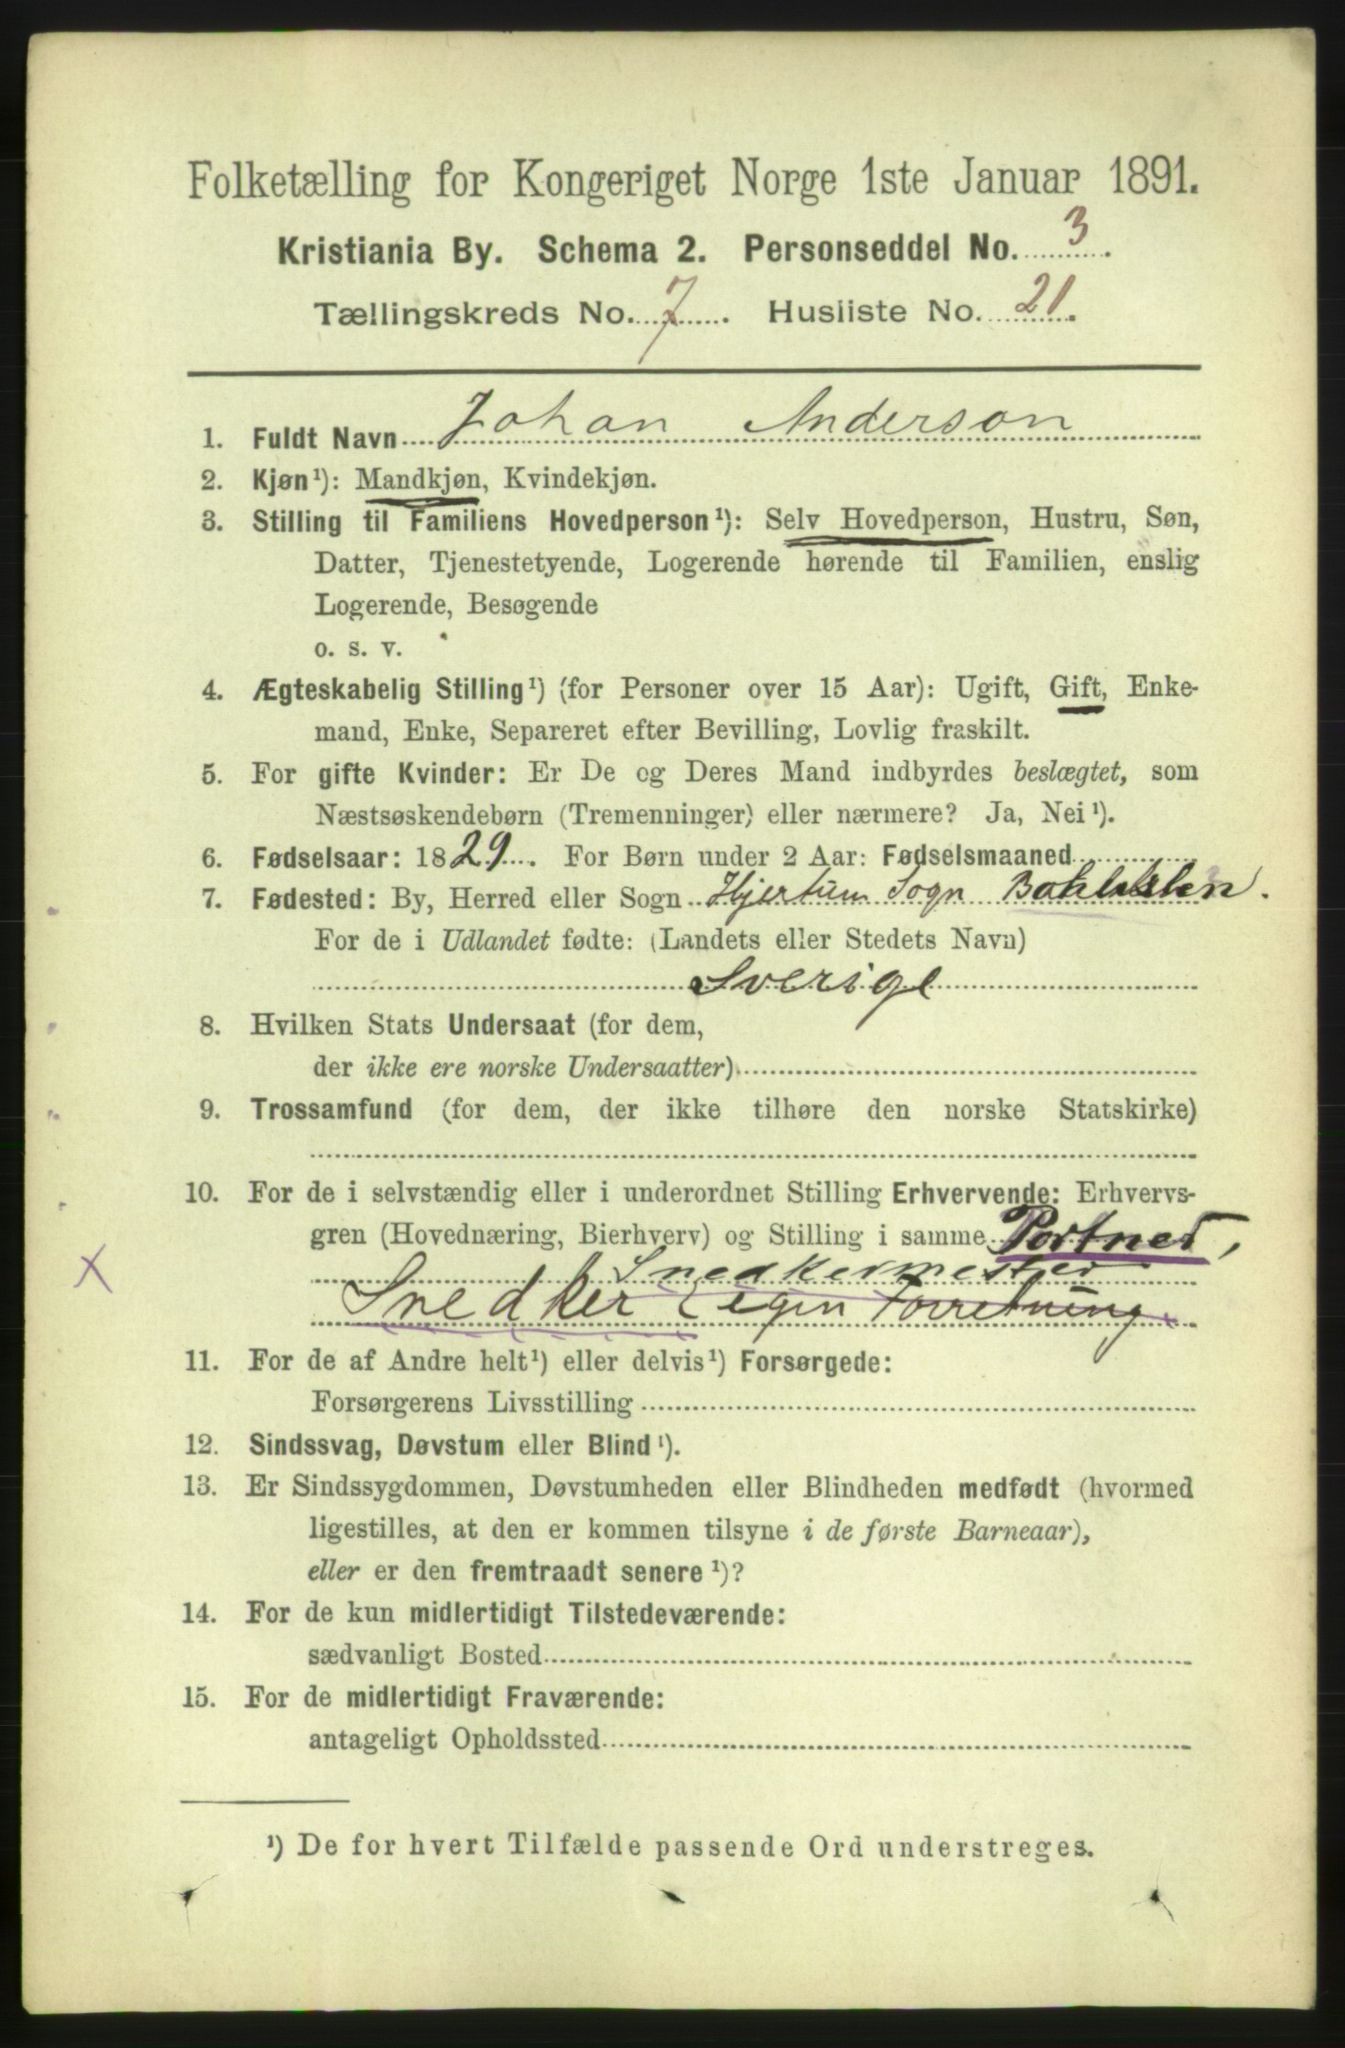 Folketælling for Kongeriget Norge 1ste Januar 1891.
Kristiania By. Schema 2. Personseddel No. 3.
Tællingskreds No. 7. Husliste No. 21.
1. Fuldt Navn Johan Anderson
2. Kjøn¹): Mandkjøn, Kvindekjøn.
3. Stilling til Familiens Hovedperson¹): Selv Hovedperson, Hustru, Søn,
Datter, Tjenestetyende, Logerende hørende til Familien, enslig
Logerende, Besøgende
o. s. v.
4. Ægteskabelig Stilling¹) (for Personer over 15 Aar): Ugift, Gift, Enke-
mand, Enke, Separeret efter Bevilling, Lovlig fraskilt.
5. For gifte Kvinder: Er De og Deres Mand indbyrdes beslægtet, som
Næstsøskendebørn (Tremenninger) eller nærmere? Ja, Nei¹).
6. Fødselsaar: 1829. For Børn under 2 Aar: Fødselsmaaned
7. Fødested: By, Herred eller Sogn Hjertum Sogn
For de i Udlandet fødte: (Landets eller Stedets Navn)
Sverige
8. Hvilken Stats Undersaat (for dem,
der ikke ere norske Undersaatter)
9. Trossamfund (for dem, der ikke tilhøre den norske Statskirke)
10. For de i selvstændig eller i underordnet Stilling Erhvervende: Erhvervs-
gren (Hovednæring, Bierhverv) og Stilling i samme Portner,
Snedkermester
Snedker i egen Forretning
11. For de af Andre helt¹) eller delvis¹) Forsørgede:
Forsørgerens Livsstilling
12. Sindssvag, Døvstum eller Blind¹).
13. Er Sindssygdommen, Døvstumheden eller Blindheden medfødt (hvormed
ligestilles, at den er kommen tilsyne i de første Barneaar),
eller er den fremtraadt senere¹)?
14. For de kun midlertidigt Tilstedeværende:
sædvanligt Bosted
15. For de midlertidigt Fraværende:
antageligt Opholdssted
¹) De for hvert Tilfælde passende Ord understreges.